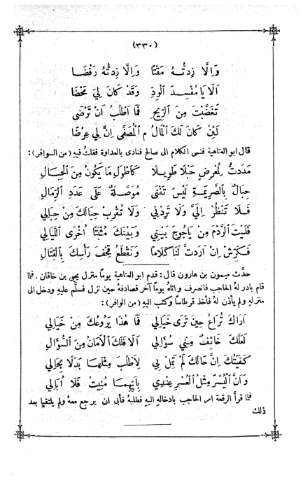 (٣٣٠)
وَإِلَّا زِدْتُهُ مَقْتًا وَإِلَّا زِدْتُهُ رَفْضَا
أَلَا يَا مُفْسِدَ الْوُدِّ وَقَدْ كَانَ لِي مَحْضَا
تَغَضَّبْتَ مِنَ الرِّيحِ فَمَا أَطْلُبُ أَنْ تَرْضَى
لَئِنْ كَانَ لَكَ الْمَالُ م الْمُصَفَّى إِنَّ لِي عِرْضَا
قال ابو العتاهية فنمى الكلام الى صالح فنادى بالعداوة فقلت فيه (من الوافر):
مَدَدْتُ لِمُعْرِضٍ حَبْلًا طَوِيلًا كَأَطْوَلِ مَا يَكُونُ مِنَ الْحِبَالِ
حِبَالٌ بِالصَّرِيمَةِ لَيْسَ تَفْنَى مُوَصَّلَةً عَلَى عَدَدِ الرِّمَالِ
فَلَا تَنْظُرْ إِلَيَّ وَلَا تُرِدْنِي وَلَا تُقَرِّبْ حِبَالَكَ مِنْ حِبَالِي
فَلَيْتَ الرَّدْمَ مِنْ يَأْجُوجَ بَيْنِي وَبَيْنَكَ مُثْبَتًا أُخْرَى اللَّيَالِي
فَكَرْشٌ إِنْ أَرَدْتَ لَنَا كَلَامًا وَنَقْطَعُ قِحْفَ رَأْسِكَ بِالْقَتَالِ
حدَّث ميمون بن هارون قال: قدم ابو العتاهية يوماً منزل يحيى بن خاقان. فلما
قام بادر له الحاجب فانصرف واتاه يوماً آخر فصادفه حين نزل فسلَّم عليه ودخل الى
منزله ولم يأذن له فأخذ قرطاساً وكتب اليه (من الوافر):
أَرَاكَ تُرَاعُ حِينَ تَرَى خَيَالِي فَمَا هَذَا يَرُوعُكَ مِنْ خَيَالِي
لَعَلَّكَ خَائِفٌ مِنِّي سُؤَالِي أَلَا فَلَكَ الْأَمَانُ مِنَ السُّؤَالِ
كَفَيْتُكَ إِنَّ حَالَكَ لَمْ تَمِلْ بِي لِأَطْلُبَ مِثْلَهَا بَدَلًا بِحَالِي
وَأَنَّ الْيُسْرَ مِثْلُ الْعُسْرِ عِنْدِي بِأَيِّهِمَا مُنِيتُ فَلَا أُبَالِي
فلما قرأ الرقعة امر الحاجب بادخاله اليه فطلبه فأبى ان يرجع معه ولم يلتقيا بعد
ذلك